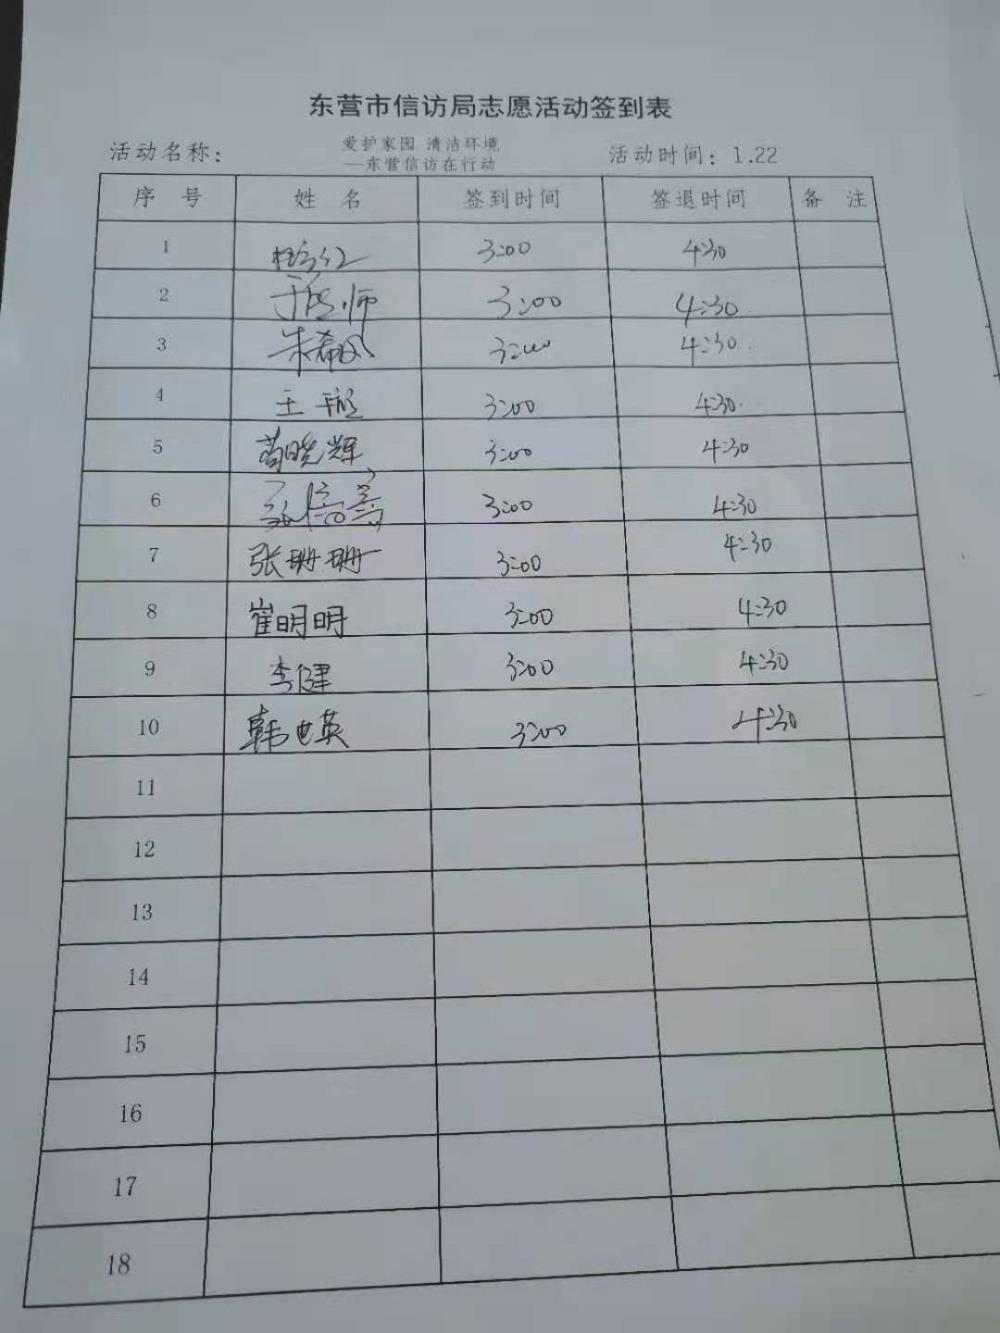 东营市信访局志愿活动签到表
活动名称： 爱护家园 清洁环境 ——东营信访在行动 活动时间：1.22
序 号 姓 名 签到时间 签退时间 备 注
1 3:00 4:30
2 3:00 4:30
3 朱希凤 3:00 4:30
4 王 3:00 4:30
5 苟晓辉 3:00 4:30
6 3:00 4:30
7 张珊珊 3:00 4:30
8 崔明明 3:00 4:30
9 李健 3:00 4:30
10 韩英 3:00 4:30
11
12
13
14
15
16
17
18